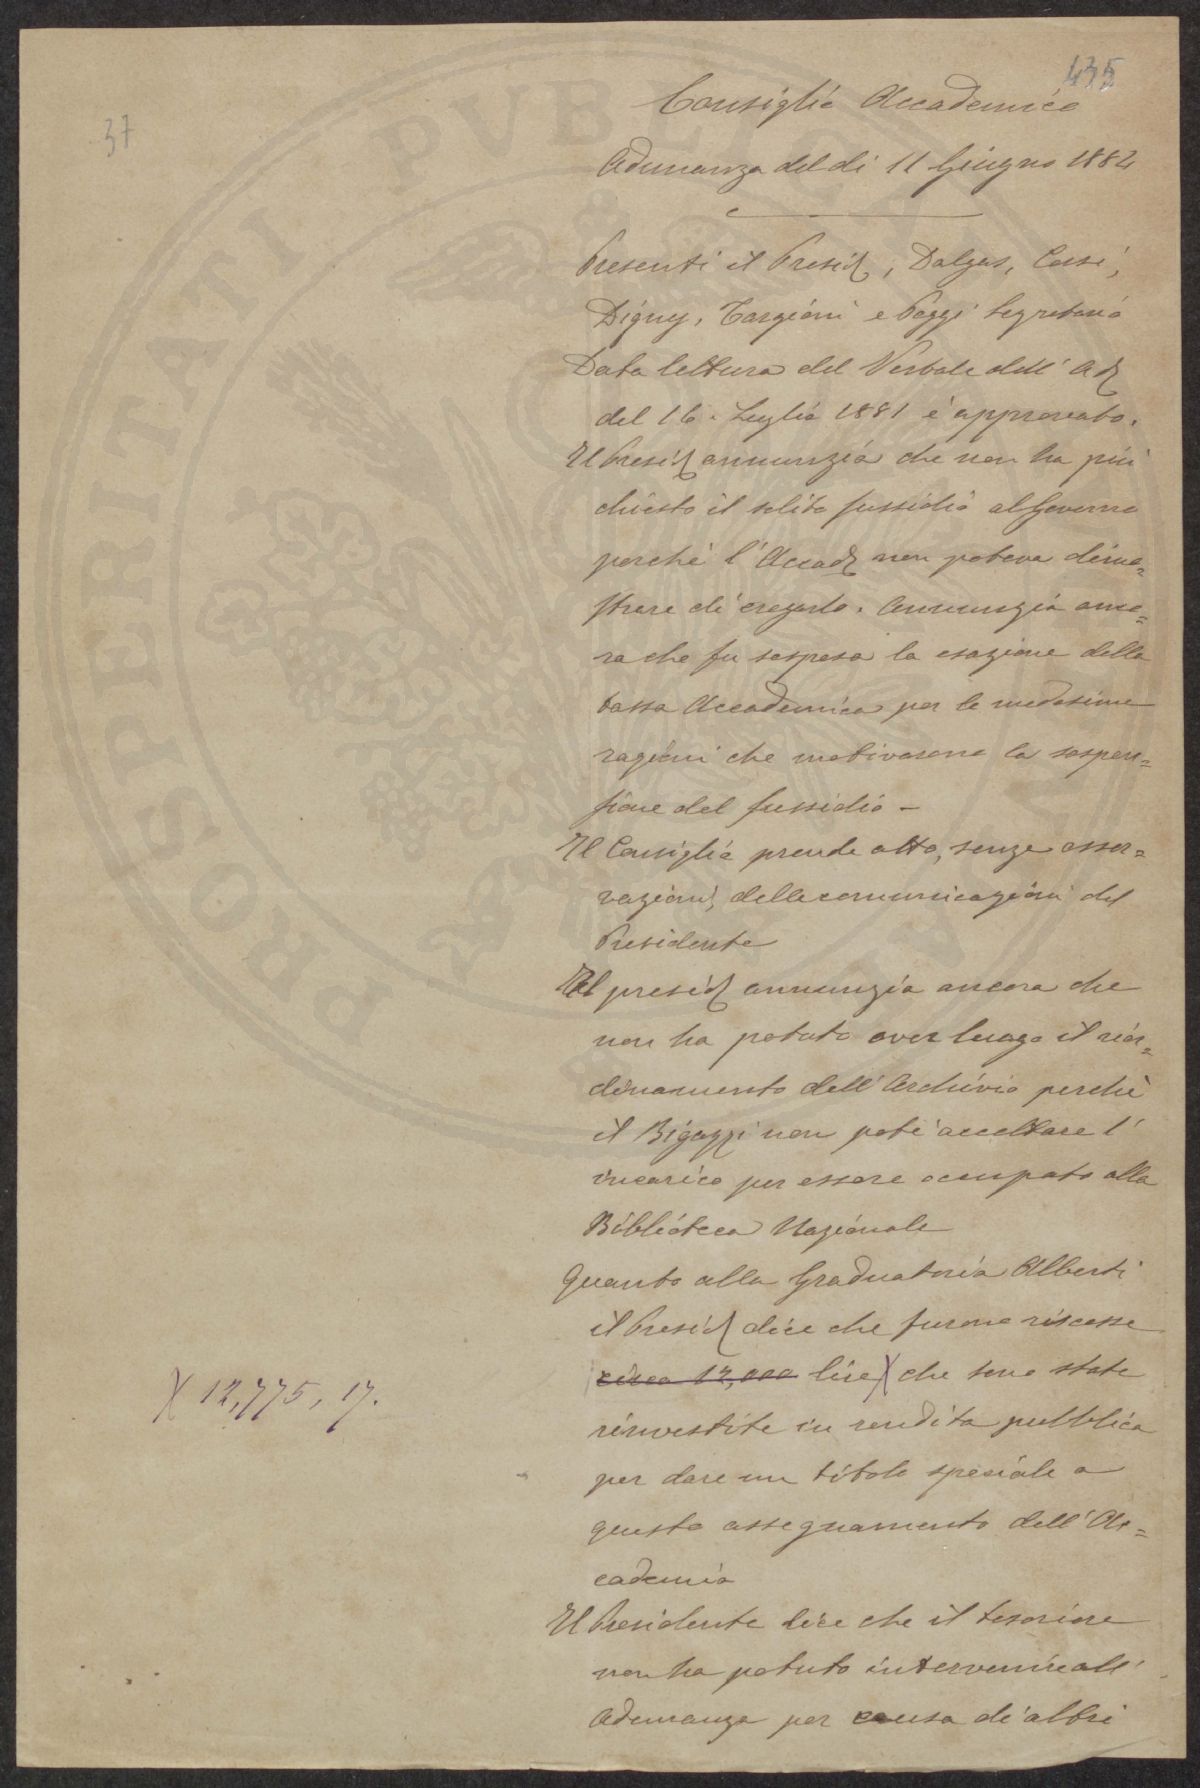 435
37
Consiglio Accademico
Adunanza del dì 11 Giugno 1882
Presenti il Presid, Dalgas, Cesi,
Digny, Targioni e Poggi Segretario
Data lettura del Verbale dell' Ad
del 16. Luglio 1881 è approvato.
Il Presid annunzia che non ha più
chiesto il solito sussidio al Governo
perchè l'Accad non poteva dimo=
strare di erogarlo. Annunzia anco=
ra che fu sospesa la esazione della
tassa Accademica per le medesime
ragioni che motivarono la sospen=
sione del sussidio —
Il Consiglio prende atto, senza osser=
vazioni, delle comunicazioni del
Presidente
Il presid annunzia ancora che
non ha potuto aver luogo il rior=
dinamento dell'Archivio perchè
il Bigazzi non potè accettare l'
incarico per essere occupato alla
Biblioteca Nazionale
Quanto alla Graduatoria Alberti
il Presid dice che furono riscosse
circa 12,000 lire X che sono state
X 12,775, 17.
rinvestite in rendita pubblica
per dare un titolo speciale a
questo assegnamento dell'Ac=
cademia
Il Presidente dice che il tesoriere
non ha potuto intervenire all'
Adunanza per causa di altri
PROSPERITATI PVBLICAE